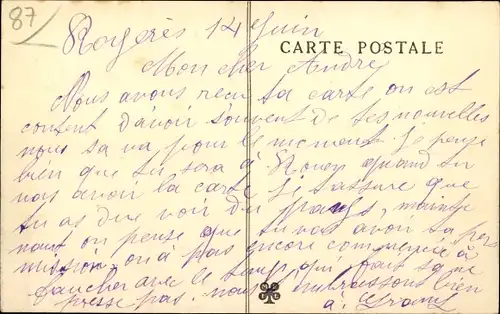 87
Royères 14 Juin
CARTE POSTALE
Mon cher André
Nous avons recu ta carte on est
content d'avoir souvent de tes nouvelles
nous sa va pour le moment je pense
bien que tu sera à Rouen quand tu
vas avoir la carte Je t'assure que
tu as due voir du pays, mainte
nant on pense que tu vas avoir ta per
mission. on a pas encore commencé à
faucher avec le temp qui fait sa ne
presse pas. nous t'embrassons bien